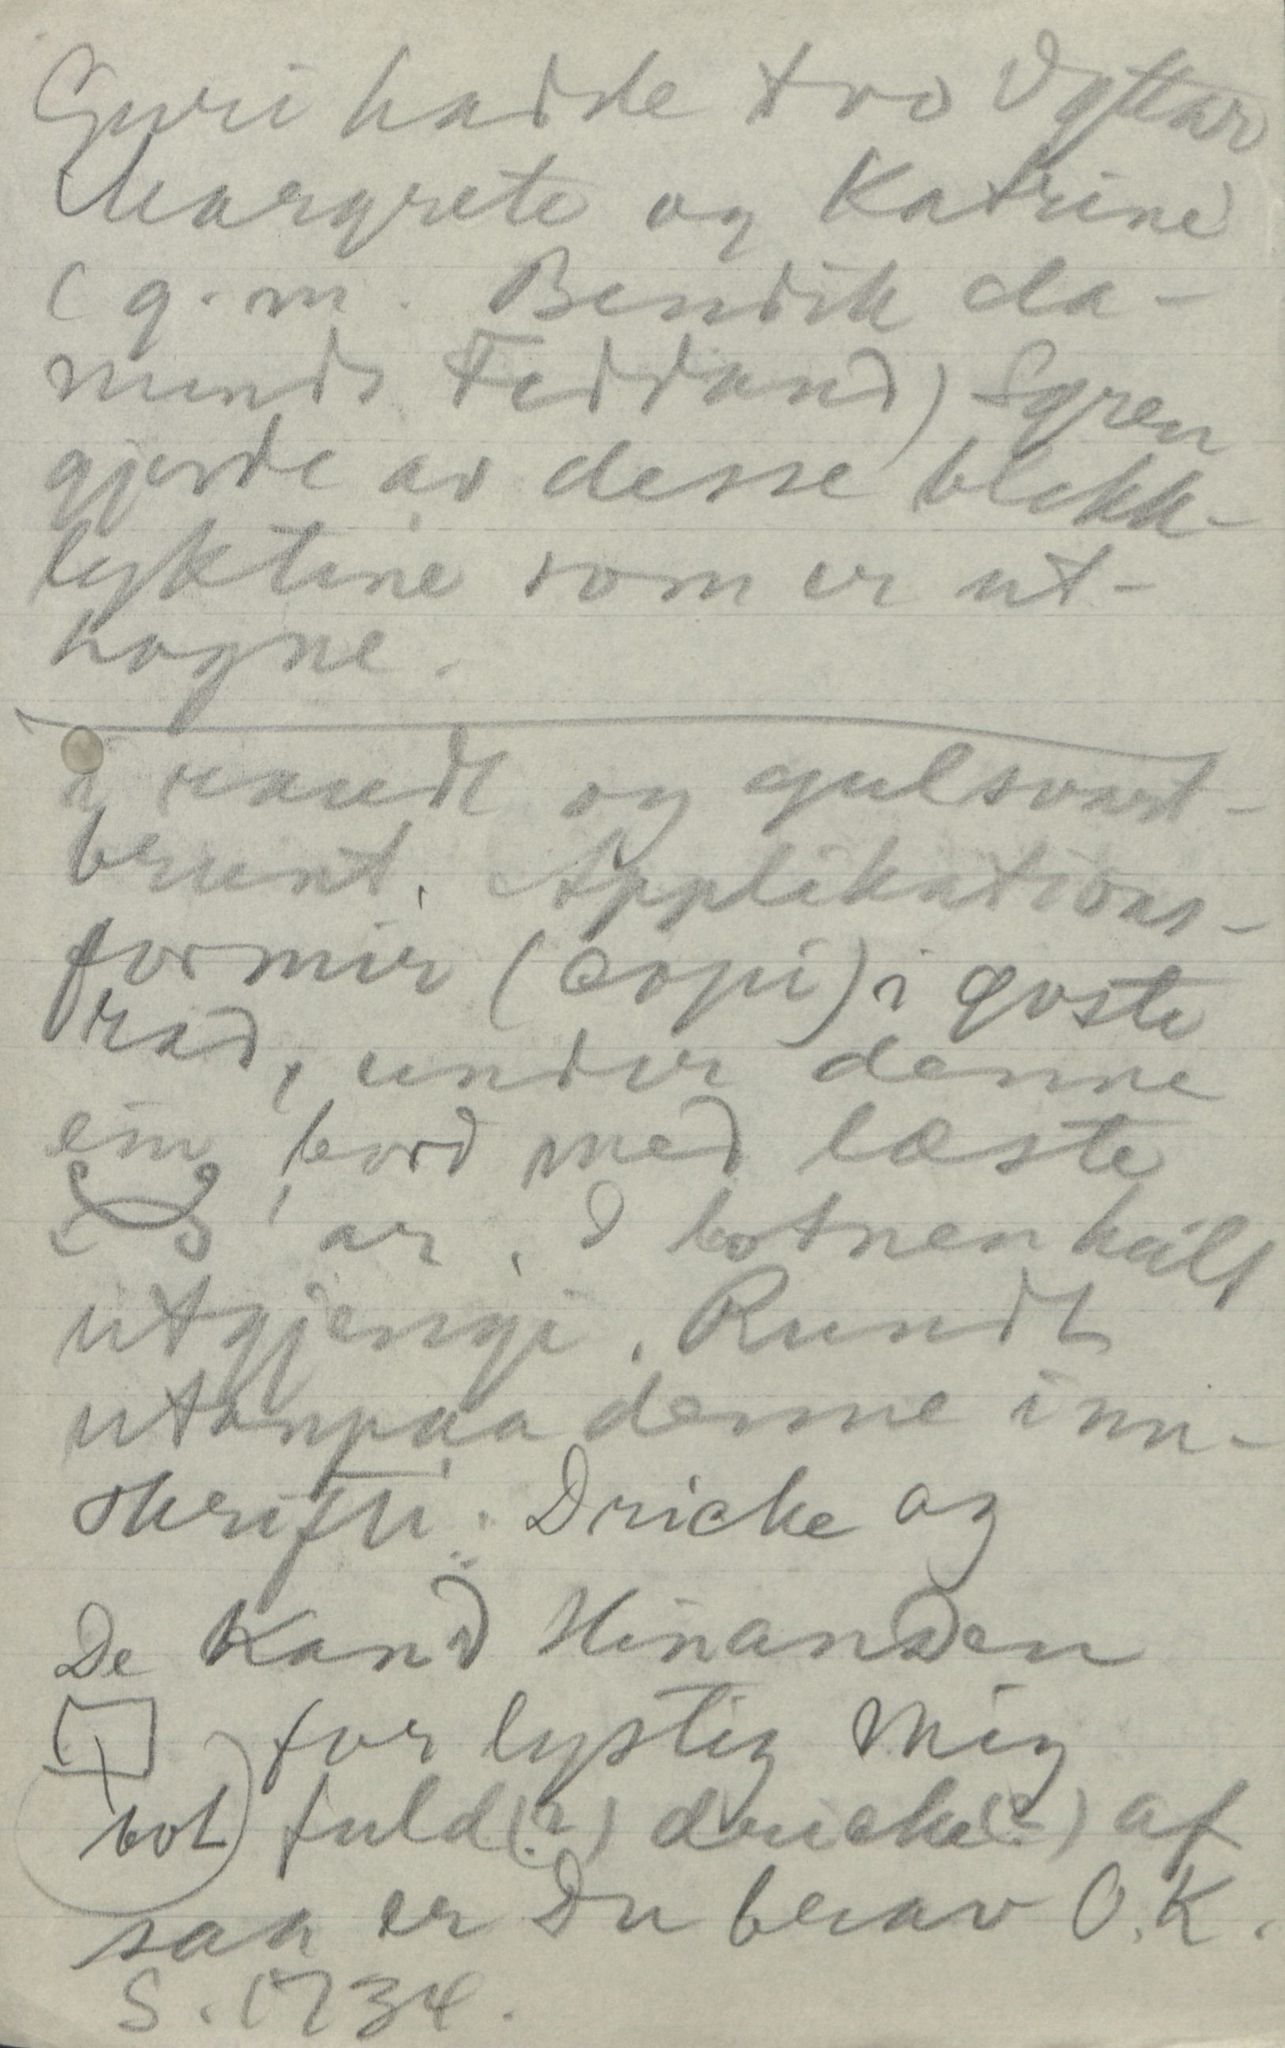 Guri hadde tvo Døttar
Margrete og Katrine
(g. m. Bendik Aa-
munds Feddand) Syren
gjorde av desse blekk-
lyktine som er ut-
hogne.
i raudt og gulsvart-
brunt. Applikations-
formir (copi) i øoste
rad, under denne
ein bord med læste
ar. I botnen heilt
utgjengi. Rundt
utanpaa denne inn-
skrifti: Dricke og
De Kand Hinanden
for lystig Mig
bot fuld(?) drucke(?) af
saa er Du brav O.K.
S. 1734.